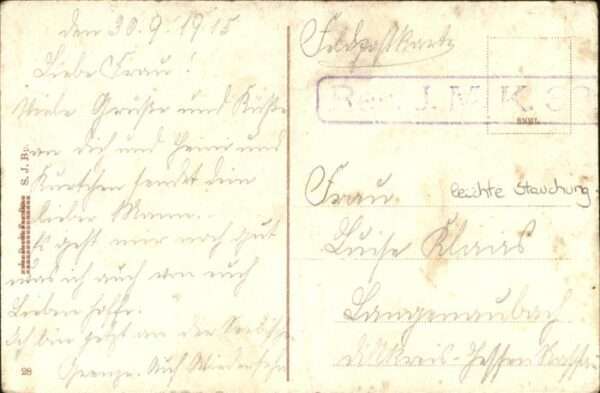 den 30.9.1915
Liebe Frau!
Viele Grüße und Küße
an dich und Heini und
Kurtchen sendet dein
lieber Mann.
Es geht mir noch gut
was ich auch von euch
Lieben hoffe.
Ich bin jetzt an der
Grenze. Auf Wiedersehn
S. J. B.
28
Feldpostkarte
J. M. K.
leichte Stauchung
Frau
Luise Klaas
Langenaubach
Dillkreis-Hessen Nassau